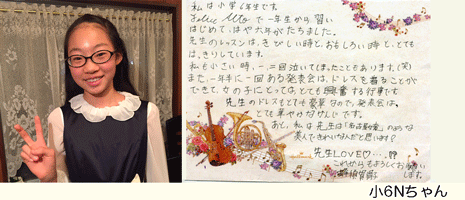 私は小学6年生です。
で一年生から習い
はじめて、はや六年がたちました。
先生のレッスンは、きびしい時と、おもしろい時と、とても
はっきりしています。
私も小さい時、一、二回泣いてしまったこともあります。(笑)
また、一年半に一回ある発表会は、ドレスを着ることが
できて、女の子にとっては、とても興奮する行事です。
先生のドレスもとても豪華なので、発表会は、
とても華やかなかんじです。
あと、私は先生は「のような
美人できれいな人だと思います?
先生LOVE♡・・・・!?
これからもよろしくお願い
します。
小6Nちゃん